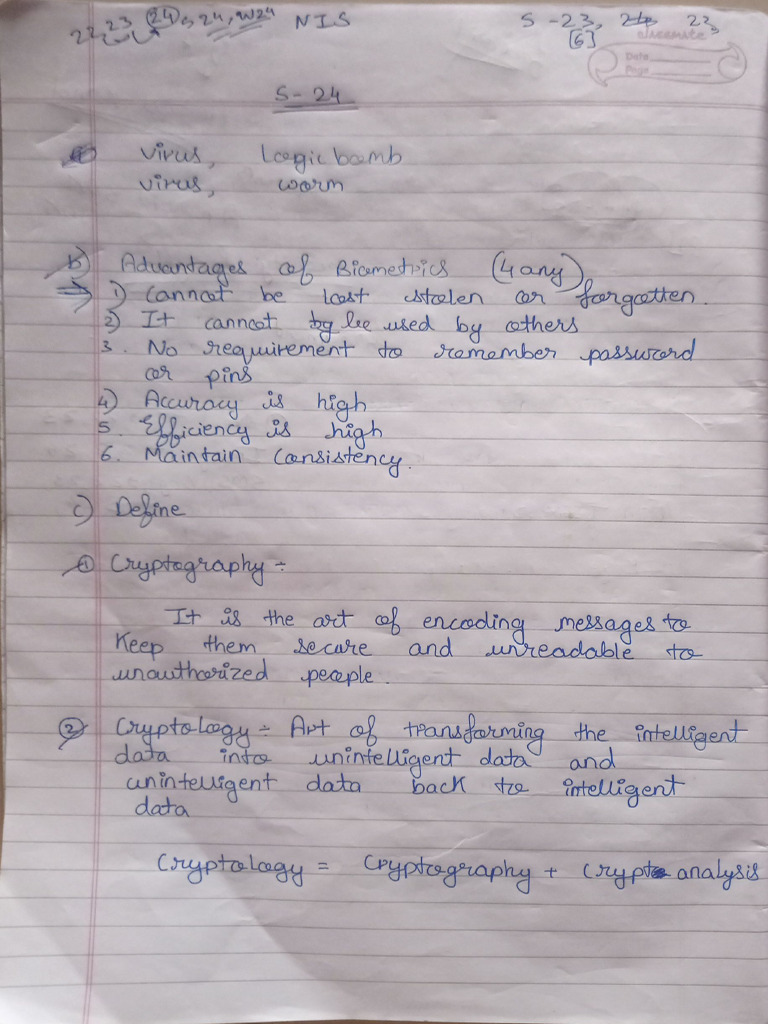 22, 23 (24), S 24, W24 NIS S - 23, 24 23,
[6]
classmate
Date
Page
S - 24
a) virus, Logic bomb
virus, worm
b) Advantages of Biometrics (4 any)
⇒ 1) Cannot be lost stolen or forgotten.
2) It cannot by be used by others
3. No requirement to remember password
or pins
4) Accuracy is high
5. Efficiency is high
6. Maintain Consistency.
c) Define
① Cryptography ÷
It is the art of encoding messages to
Keep them secure and unreadable to
unauthorized people.
② Cryptology ÷ Art of transforming the intelligent
data into unintelligent data and
unintelligent data back to intelligent
data
Cryptology = Cryptography + Crypto analysis